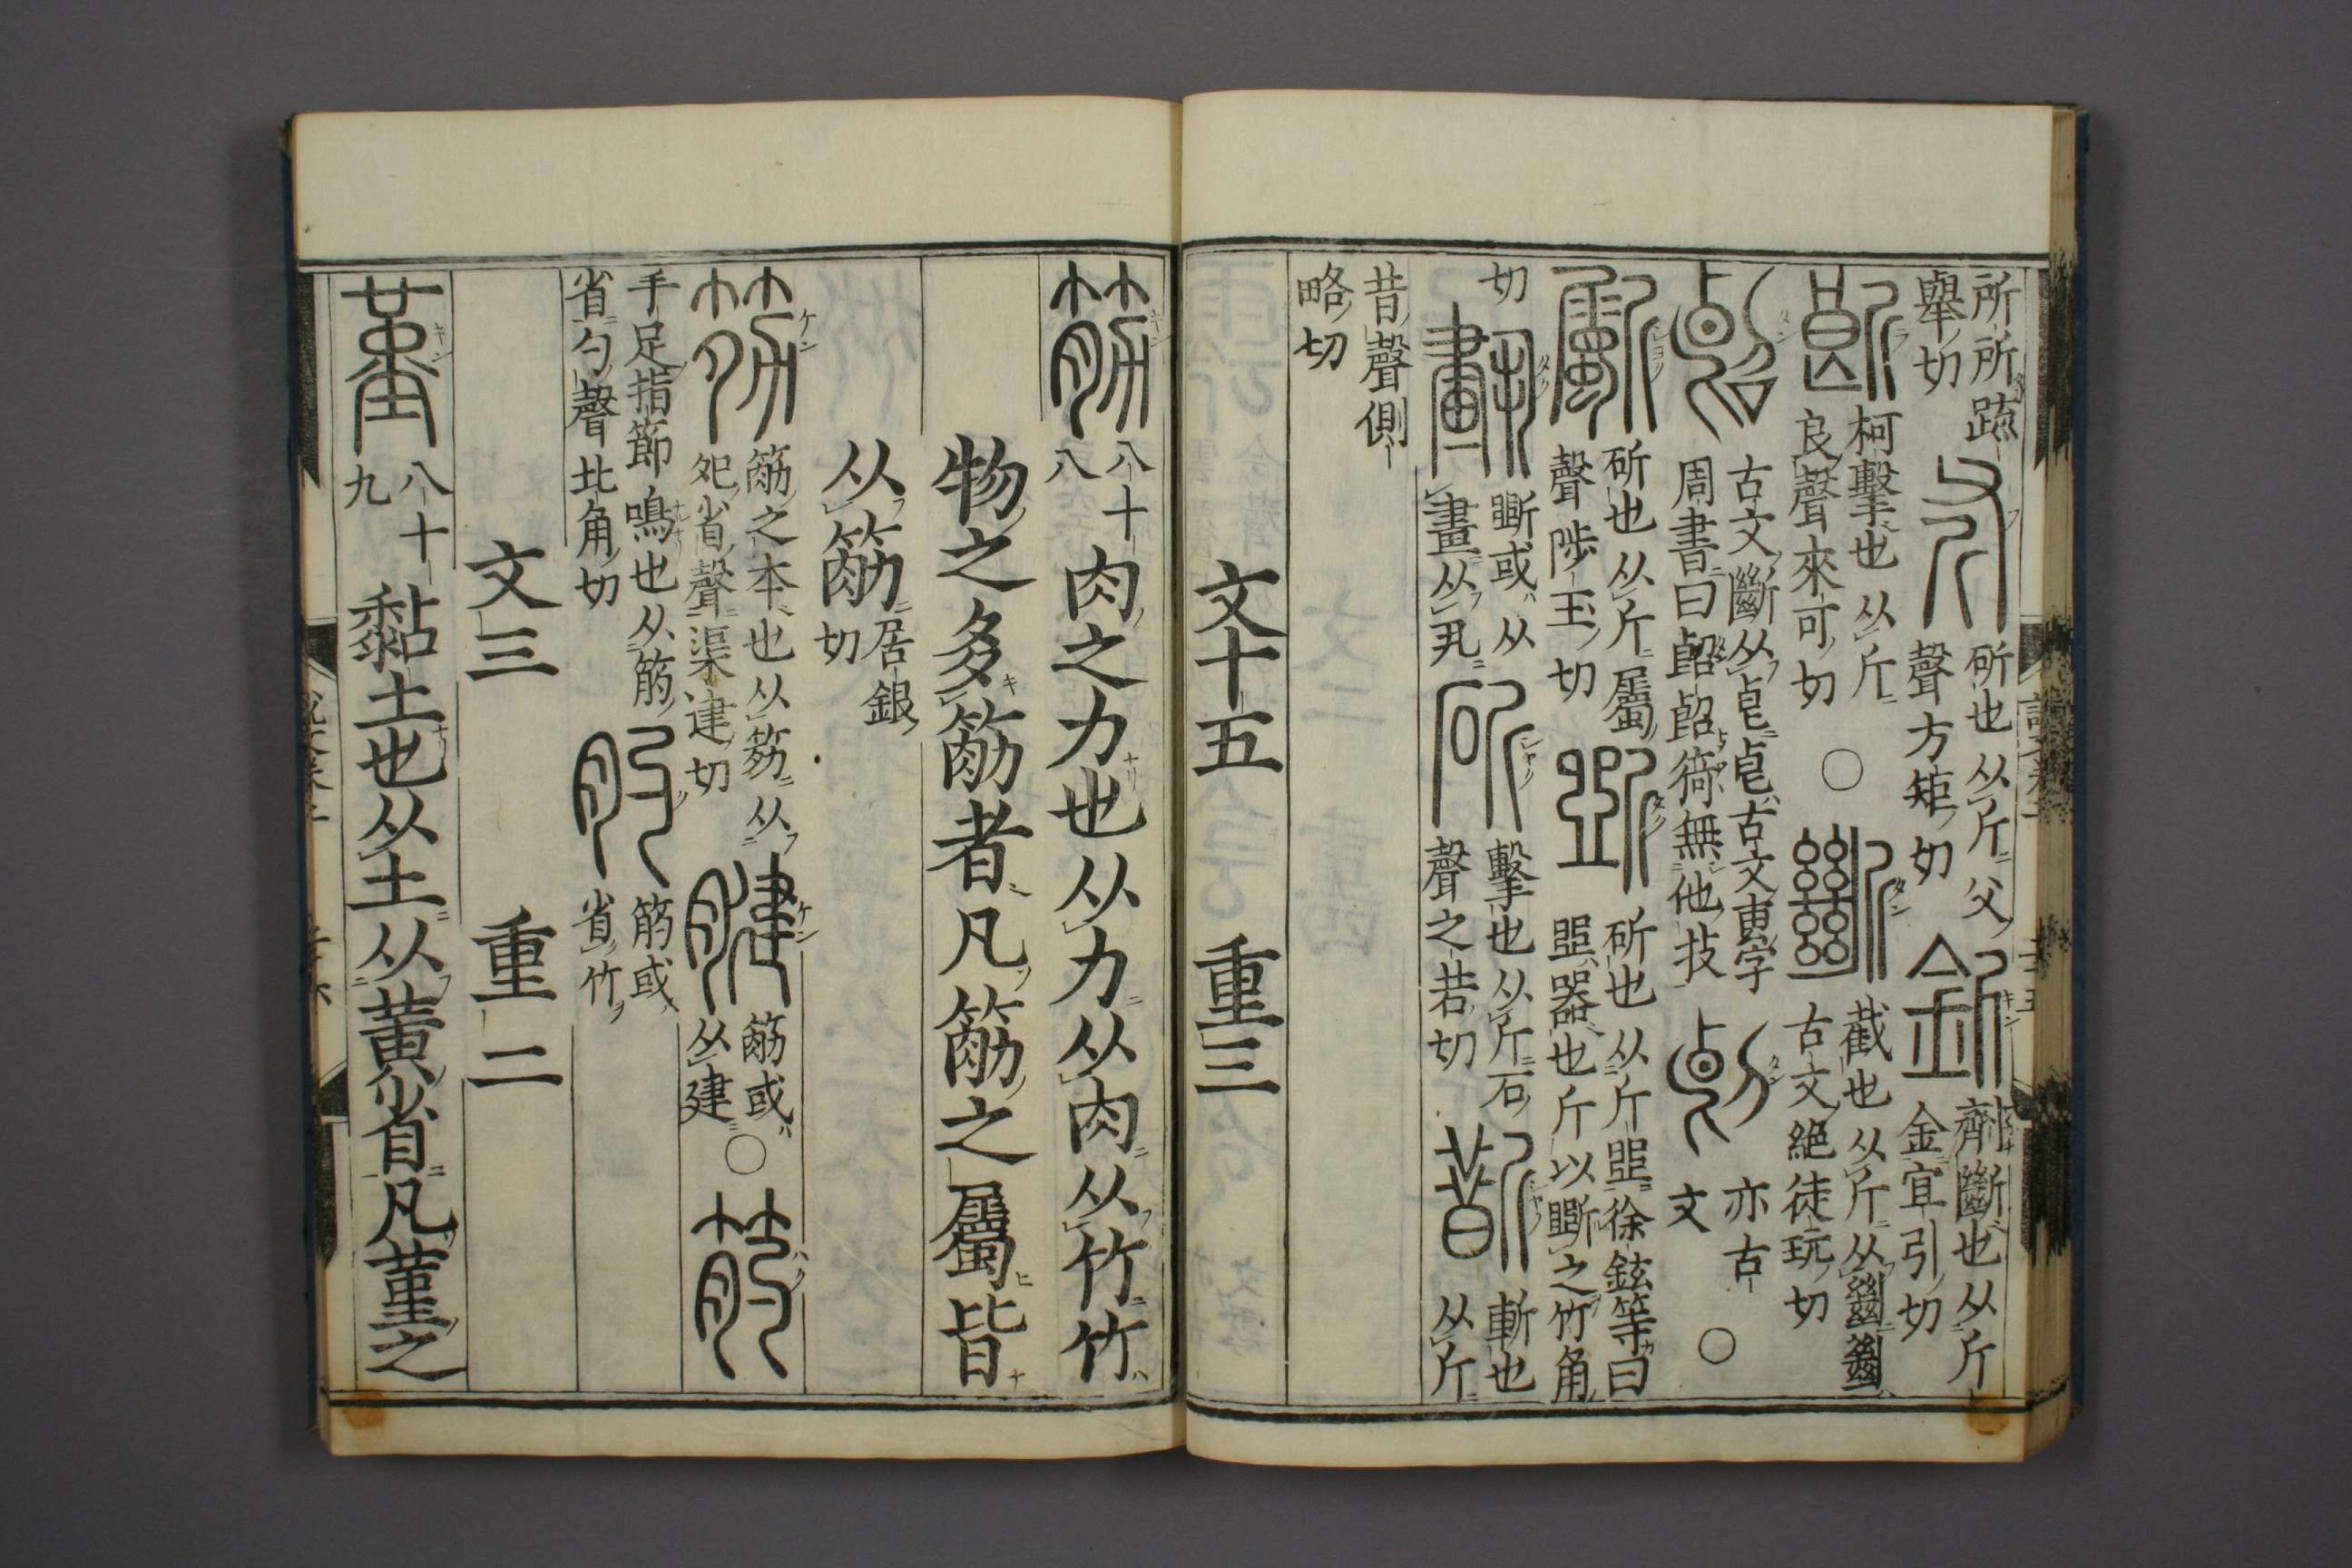 所所䟽
舉切
斧
斫也从斤父
聲方矩切
釿
劑斷也从斤
金宜引切
柯擊也从斤
良聲來可切
〇
斷
截也从斤从㡭㡭
古文絕徒玩切
古文斷从㡭㡭古文叀字
周書曰㫁㫁猗無他技
亦古
文
〇
斫也从斤屬
聲陟玉切
斫也从斤㽅徐鉉等曰
㽅器也斤以斲之竹角
切
斲或从
畫从丮
所
擊也从斤石
聲之若切
斮
斬也从斤
昔聲側
略切
文十五 重三
筋
八十
八
肉之力也从力从肉从竹竹
物之多筋者凡筋之屬皆
从筋
居銀
切
筋之本也从筋从
夗省聲渠建切
腱
筋或
从建
〇
手足指節鳴也从筋
省勺聲北角切
筋或
省竹
文三 重二
堇
八十
九
黏土也从土从黃省凡堇之